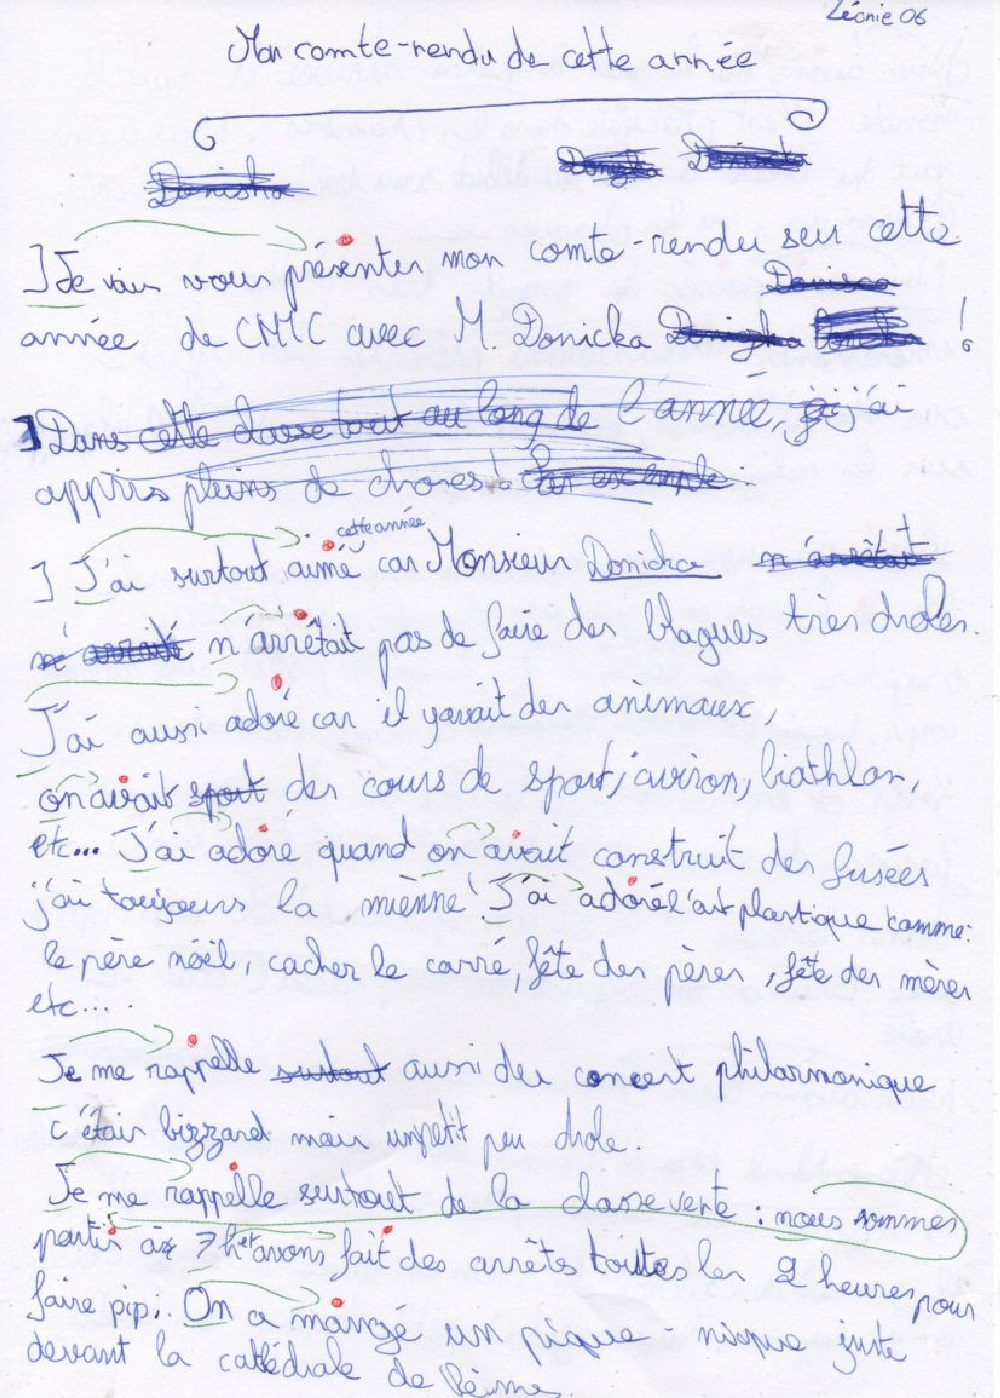 Léonie 06
Mon comte-rendu de cette année
Donicka Donizka Donicka
Je vais vous présenter mon comte-rendu seu cette
Donisca
année de CM1C avec M. Donicka Donizka !
Dans cette classe tout au long de l'année, j'ai
appris pleins de choses! Par exemple.
cette année
J'ai surtout aimé car Monsieur Donicka n'arrêtait
n'arrêtait pas de faire des blagues très droles.
J'ai aussi adoré car il yavait des animaux,
on avait sport des cours de sport, aviron, biathlon,
etc... J'ai adoré quand on avait construit des fusées
j'ai toujours la mienne! J'ai adoré l'art plastique comme:
le père nöel, cacher le carré, fête des pères, fête des mères
etc....
Je me rappelle surtout aussi du concert philarmonique
c'étais bizzard mais un petit peu drole.
Je me rappelle surtout de la classe verte : nous sommes
partis à 7h et avons fait des arrêts toutes les 2 heures pour
faire pipi. On a mangé un pique-nique juste
devant la cathédrale de Reims.